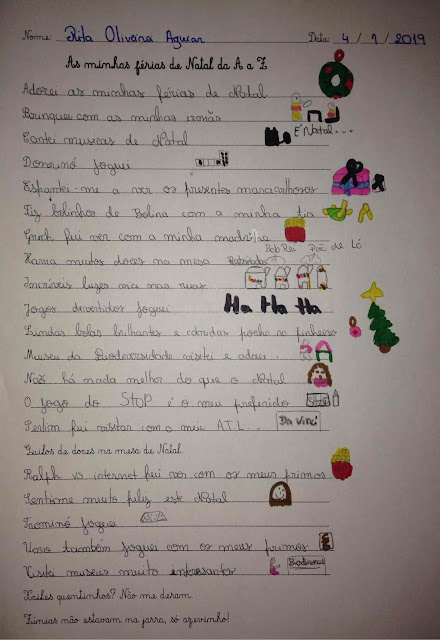 Nome: Rita Oliveira Aguiar Data: 4/1/2019
As minhas férias de Natal da A a Z
Adorei as minhas férias de Natal
Brinquei com as minhas irmãs
Cantei musicas de Natal É Natal...
Dominó joguei
Espantei-me a ver os presentes maravilhosos
Fiz bolinhos de Bolina com a minha tia
Grinch fui ver com a minha madrinha
Bolo Rei Pão de Ló
Havia muitos doces na mesa Rabanadas
Incríveis luzes vi a nas ruas
Jogos divertidos joguei Ha Ha Ha
Lindas bolas brilhantes e coloridas ponho no pinheiro
Museu da Biodiversidade visitei e adorei.
Não há nada melhor do que o Natal
O jogo do STOP é o meu preferido
Perlim fui visitar com o meu A.T.L... Da Vinci
Quilos de doces na mesa de Natal.
Ralph vs internet fui ver com os meus primos
Senti-me muito feliz este Natal
Triominó joguei
Uno também joguei com os meus primos
Visitei museus muito interessantes
Xailes quentinhos? Não me deram.
Zínias não estavam na jarra, só azevinho!